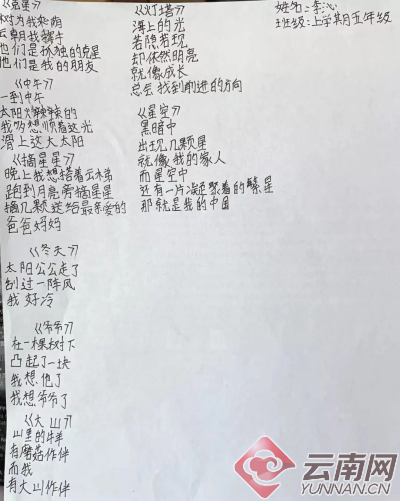 《克星》
树为我乘阴
云朝我挥手
他们是孤独的克星
他们是我的朋友
《中午》
一到中午
太阳火辣辣的
我多想顺着这光
滑上这大太阳
《摘星星》
晚上我想搭着云梯
跑到月亮旁摘星星
摘几颗送给最亲爱的
爸爸妈妈
《冬天》
太阳公公走了
刮过一阵风
我好冷
《爷爷》
在一棵树下
凸起了一块
我想他了
我想爷爷了
《大山》
山里的羊
有蘑菇作伴
而我
有大山作伴
《灯塔》
海上的光
若隐若现
却依然明亮
就像成长
总会找到前进的方向
《星空》
黑暗中
出现几颗星
就像我的家人
而星空中
还有一片凝聚着的繁星
那就是我的中国
姓名:李沁
班级:上学期五年级
云南网
YUNNAN.CN